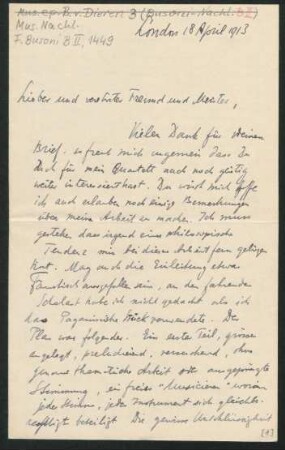 Mus. ep. B. v. Dieren 3 (Busoni-Nachl. B II)
Mus. Nachl.
F. Busoni B II, 1449
London 18 April 1913
Lieber und verehrter Freund und Meister,
Vielen Dank für Deinen
Brief. Es freut mich ungemein dass Du
Dich für mein Quartett auch noch gütig
weiter interessiert hast. Du wirst mir hoffe
ich auch erlauben noch einige Bemerkungen
über meine Arbeit zu machen. Ich muss
gestehe, dass irgend eine philosophische
Tendenz mir bei dieser Arbeit fern gelegen
hat. Mag auch die Einleitung etwas
Faustisch ausgefallen sein, an den fahrende
Scholast habe ich nicht gedacht als ich
das Paganinische Stück verwendete. Der
Plan war folgender. Ein erster Teil, gross
angelegt, preludierend, versuchend, ohne
genaue thematische Arbeit oder ausgeprägte
Stimmung, ein freies "Musicieren" woran
jede Stimme, jedes Instrument sich gleichbe-
rechtigt beteiligt. Die gewisse Unschlüssigkeit
[1]